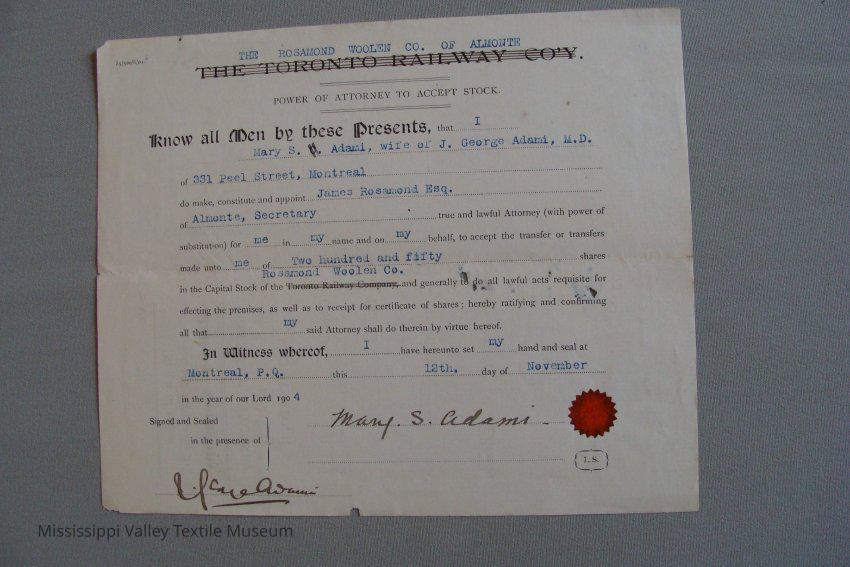 THE ROSAMOND WOOLEN CO. OF ALMONTE
THE TORONTO RAILWAY CO'Y.
POWER OF ATTORNEY TO ACCEPT STOCK.
Know all Men by these Presents, that I
Mary S. A. Adami, wife of J. George Adami, M.D.
of 331 Peel Street, Montreal
do make, constitute and appoint James Rosamond Esq.
of Almonte, Secretary true and lawful Attorney (with power of
substitution) for me in my name and on my behalf, to accept the transfer or transfers
made unto me of Two hundred and fifty shares
Rosamond Woolen Co.
in the Capital Stock of the Toronto Railway Company, and generally to do all lawful acts requisite for
effecting the premises, as well as to receipt for certificate of shares; hereby ratifying and confirming
all that my said Attorney shall do therein by virtue hereof.
In Witness whereof, I have hereunto set my hand and seal at
Montreal, P.Q. this 12th. day of November
in the year of our Lord 1904
Signed and Sealed
in the presence of
Mary. S. Adami
L.S.
Adami
Mississippi Valley Textile Museum